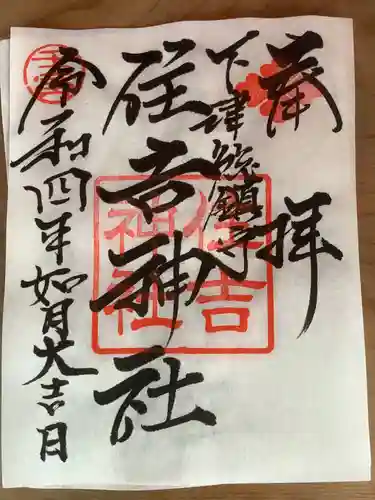 奉拝
下津総鎮守
住吉神社
住吉神社
令和四年如月大吉日